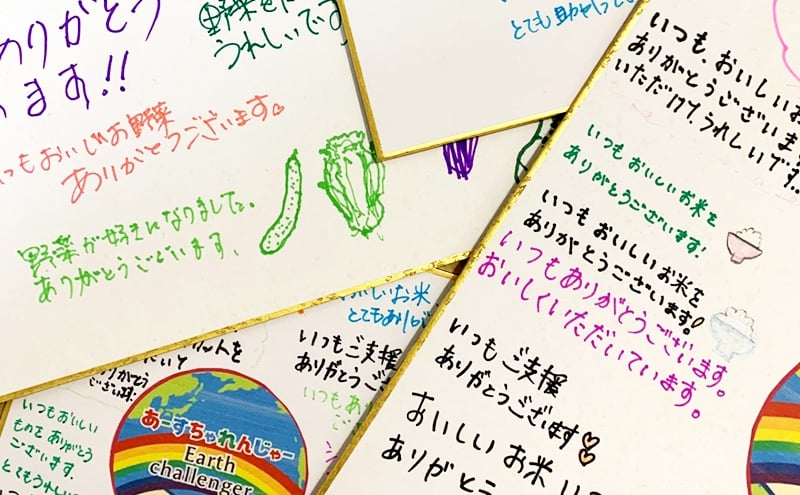 ありがとう
ます!!
野菜を
うれしいです
いつもおいしいお野菜
ありがとうございます
野菜が好きになりました。
ありがとうございます、
いつも、おいしいお
ありがとうございます
いただけて、うれしいです。
いつもおいしいお米を
ありがとうございます!
いつもおいしいお米を
ありがとうございます!
いつもありがとうございます。
おいしくいただいています。
いつもご支援
ありがとうございます
おいしいお米
ありがとう
おいしいお米
とてもあり
いつもご支援
ありがとうご
ありがとう
ございます
いつもおいしい
ものをありがとう
ございます。
とてもうれしい
あーすちゃれんじゃー
Earth
challenger